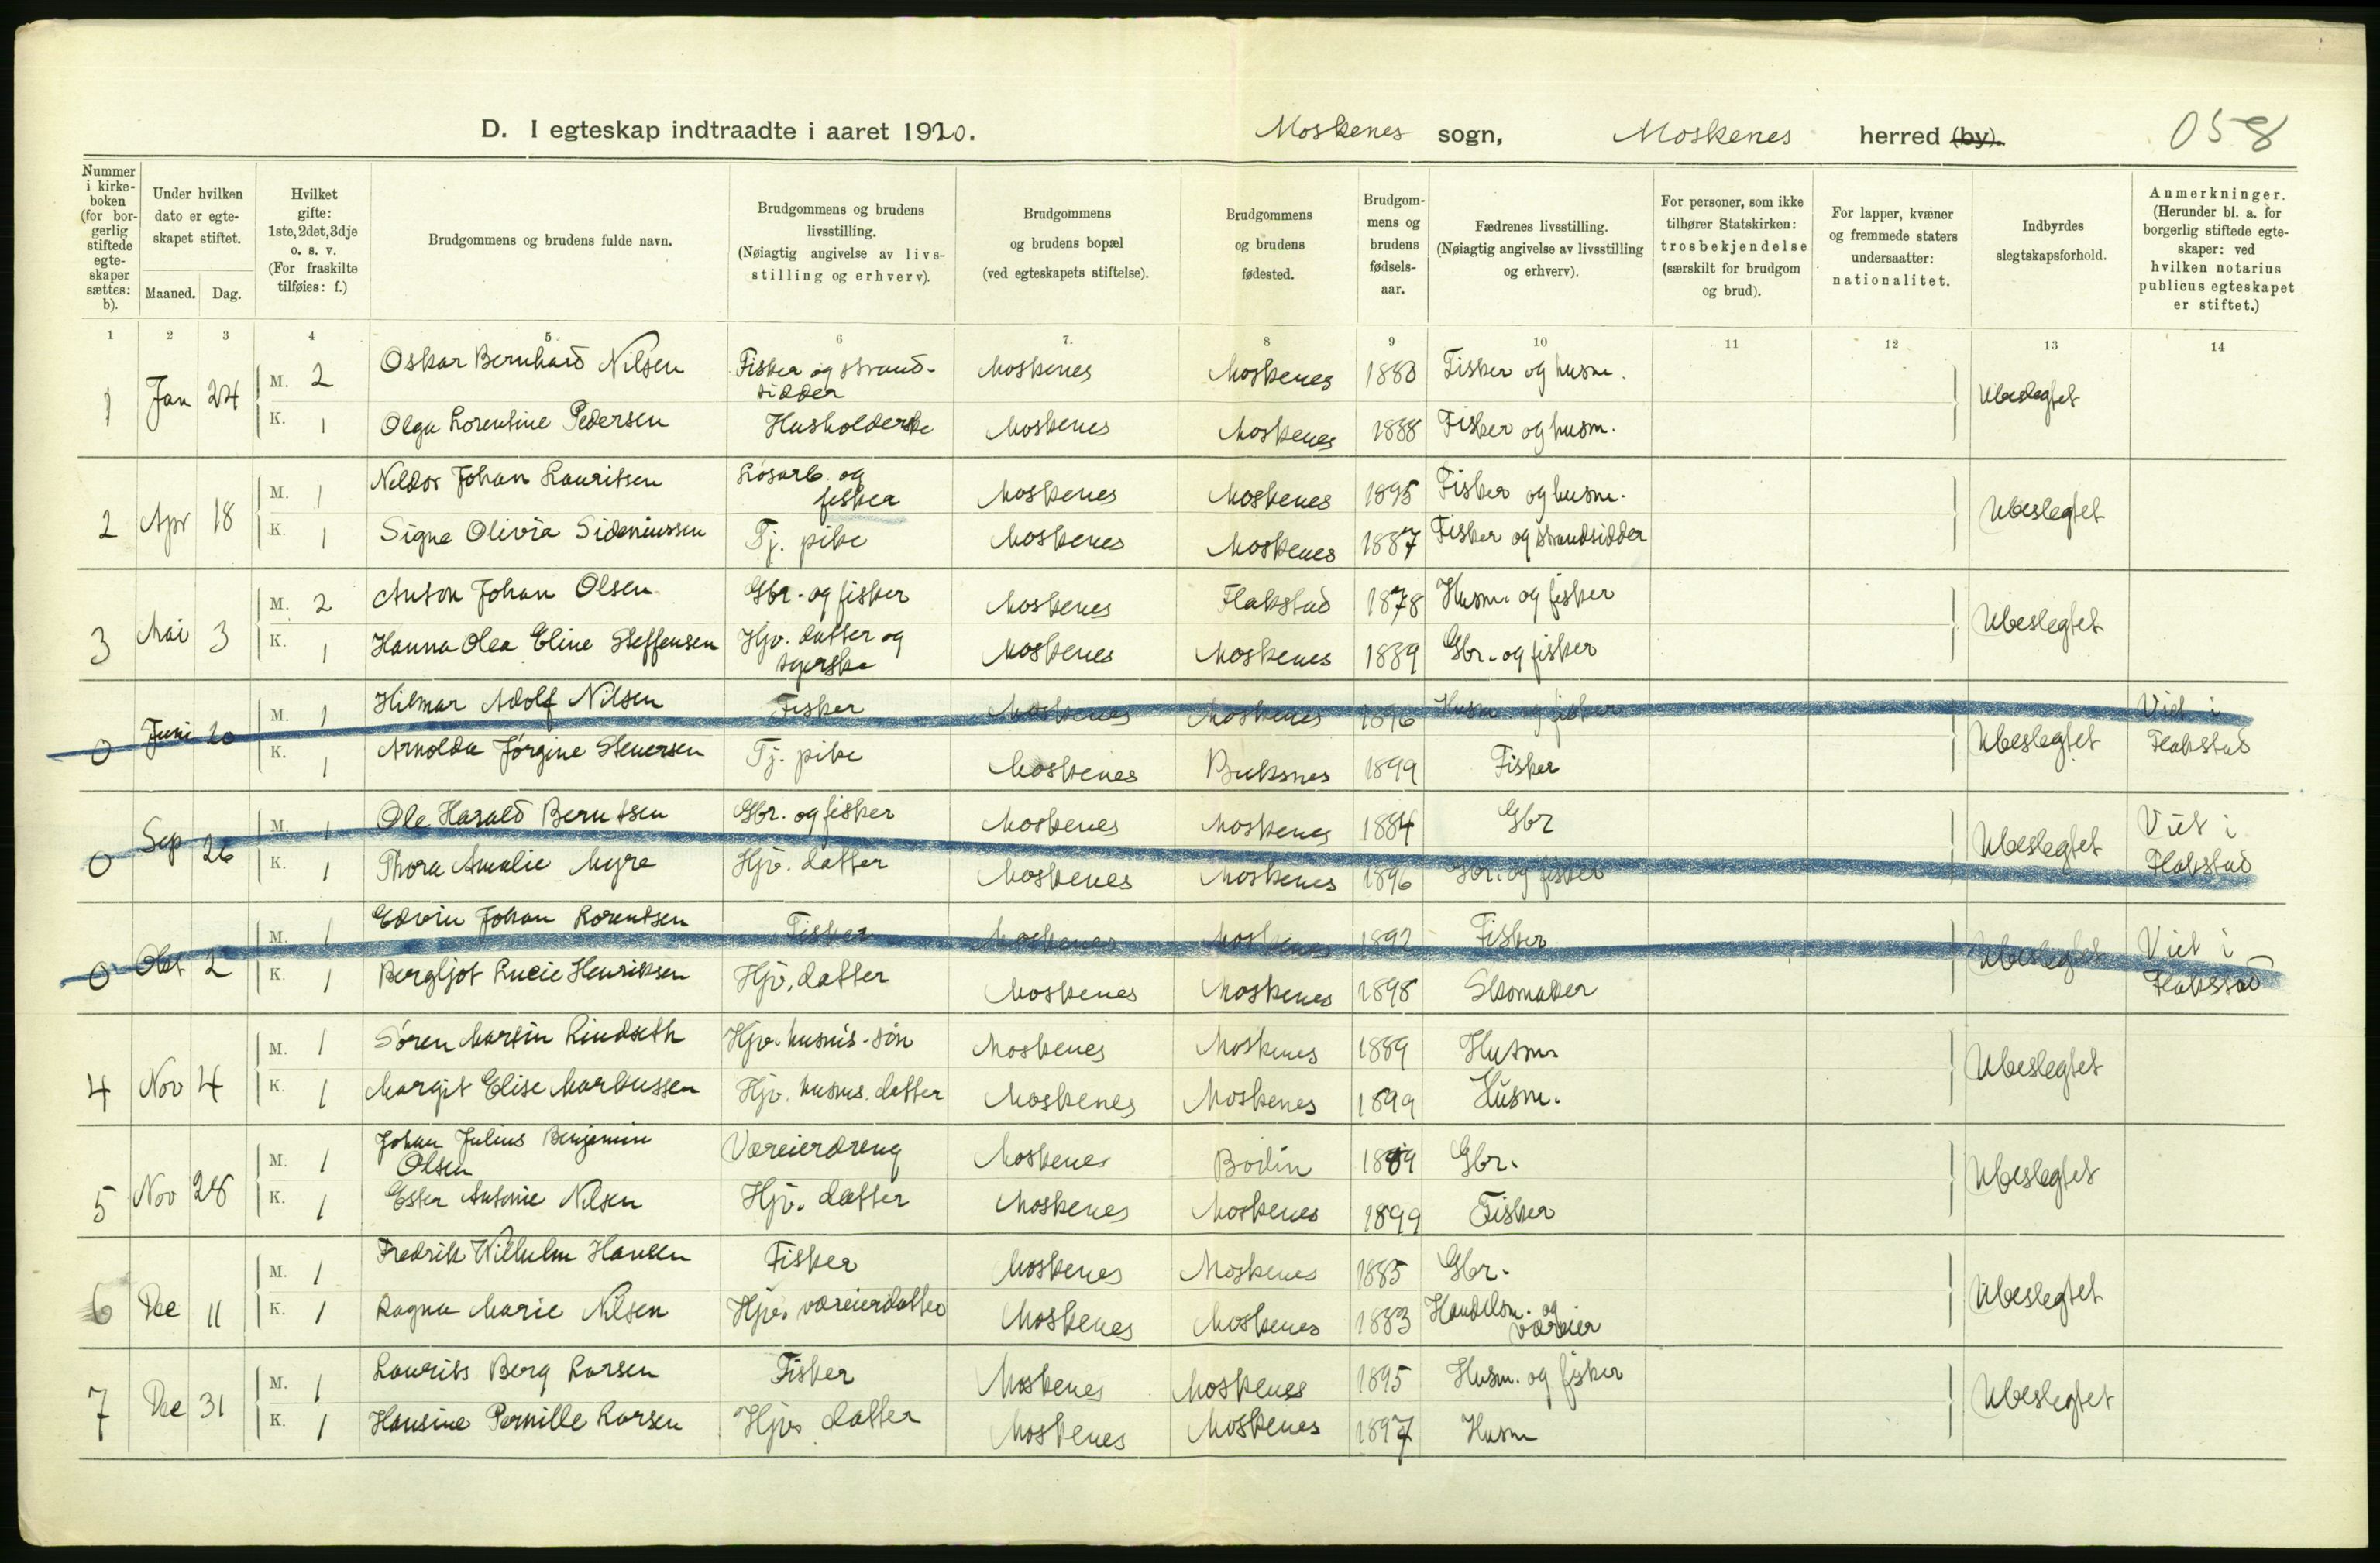 D. I egteskap indtraadte i aaret 1920. Moskenes sogn, Moskenes herred (by). 058
Nummer i kirkeboken (for borgerlig stiftede egteskaper sættes: b).
Under hvilken dato er egteskapet stiftet.
Maaned. Dag.
Hvilket gifte: 1ste, 2det, 3dje o. s. v. (For fraskilte tilføies: f.)
Brudgommens og brudens fulde navn.
Brudgommens og brudens livsstilling. (Nøiagtig angivelse av livsstilling og erhverv).
Brudgommens og brudens bopæl (ved egteskapets stiftelse).
Brudgommens og brudens fødested.
Brudgommens og brudens fødselsaar.
Fædrenes livsstilling. (Nøiagtig angivelse av livsstilling og erhverv).
For personer, som ikke tilhører Statskirken: trosbekjendelse (særskilt for brudgom og brud).
For lapper, kvæner og fremmede staters undersaatter: nationalitet.
Indbyrdes slegtskapsforhold.
Anmerkninger. (Herunder bl. a. for borgerlig stiftede egteskaper: ved hvilken notarius publicus egteskapet er stiftet.)
1 2 3 4 5 6 7. 8 9 10 11 12 13 14
1 Jan 24 M. 2 Oskar Bernhard Nilsen Fisker og strandsidder Moskenes Moskenes 1880 Fisker og husm. Ubeslegtet
K. 1 Olga Lorentine Pedersen Husholderske Moskenes Moskenes 1888 Fisker og husm.
2 Apr 18 M. 1 Neldor Johan Lauritsen Løsarb. og fisker Moskenes Moskenes 1895 Fisker og husm. Ubeslegtet
K. 1 Signe Olivia Sideniussen Tj. pike Moskenes Moskenes 1887 Fisker og strandsidder
3 Mai 3 M. 2 Anton Johan Olsen Gbr. og fisker Moskenes Flakstad 1878 Husm. og fisker Ubeslegtet
K. 1 Hanna Olea Eline Steffensen Hjv. datter og syerske Moskenes Moskenes 1889 Gbr. og fisker
0 Juni 20 M. 1 Hilmar Adolf Nilsen Fisker Moskenes Moskenes 1896 Husm og fisker Ubeslegtet Viet i Flakstad
K. 1 Arnolda Jørgine Stenersen Tj. pike Moskenes Buksnes 1899 Fisker
0 Sep 26 M. 1 Ole Harald Berntsen Gbr. og fisker Moskenes Moskenes 1884 Gbr Ubeslegtet Viet i Flakstad
K. 1 Thora Amalie Myre Hjv. datter Moskenes Moskenes 1896 Gbr. og fisker
0 Okt 2 M. 1 Edvin Johan Lorentsen Fisker Moskenes Moskenes 1892 Fisker Ubeslegtet Viet i Flakstad
K. 1 Bergljot Lucie Henriksen Hjv. datter Moskenes Moskenes 1898 Skomaker
4 Nov 4 M. 1 Søren Martin Lindseth Hjv. husm's-søn Moskenes Moskenes 1889 Husm. Ubeslegtet
K. 1 Margit Elise Markussen Hjv. husms. datter Moskenes Moskenes 1899 Husm.
5 Nov 28 M. 1 Johan Julius Benjamin Olsen Væreierdreng Moskenes Bodin 1889 Gbr. Ubeslegtet
K. 1 Ester Antonie Nilsen Hjv. datter Moskenes Moskenes 1899 Fisker
6 Dec 11 M. 1 Fredrik Wilhelm Hansen Fisker Moskenes Moskenes 1885 Gbr. Ubeslegtet
K. 1 Ragna Marie Nilsen Hjv. væreierdatter Moskenes Moskenes 1883 Handelsm. og væreier
7 Dec 31 M. 1 Laurits Berg Larsen Fisker Moskenes Moskenes 1895 Husm. og fisker Ubeslegtet
K. 1 Hansine Pernille Larsen Hjv. datter Moskenes Moskenes 1897 Husm